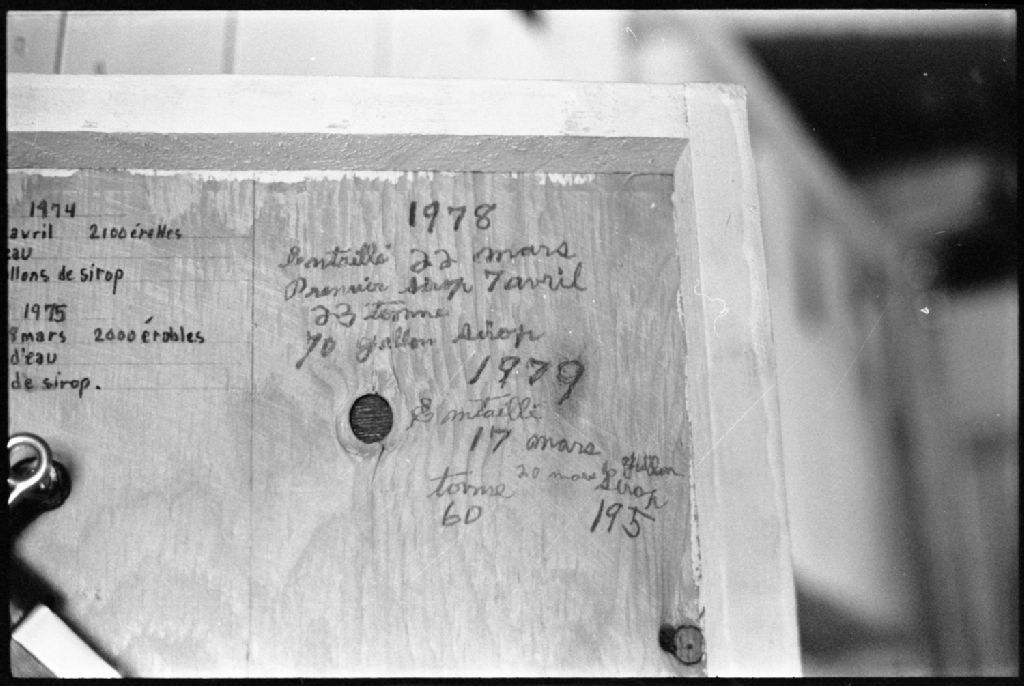 1974
avril 2100 érables
eau
llons de sirop
1975
8 mars 2000 érables
d'eau
de sirop.
1978
Entaillé 22 mars
Premier sirop 7 avril
23 tonne
70 gallon sirop
1979
Entaillé
17 mars
20 mars gallon
tonne sirop
60 195